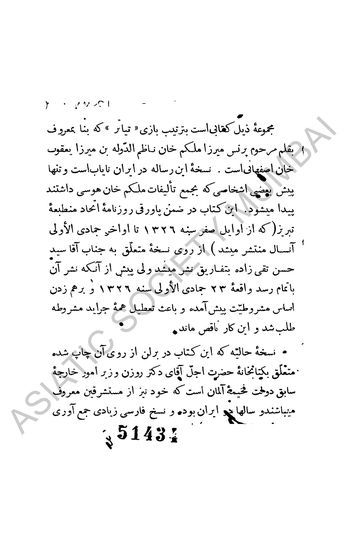 مجموعهٔ ذیل کتابی است بترتیب بازی «تیاتر» که بنا بمعروف
بقلم مرحوم پرنس میرزا ملکم خان ناظم الدوله بن میرزا یعقوب
خان اصفهانی است . نسخهٔ این رساله در ایران نایاب است و تنها
پیش بعضی اشخاصی که بجمع تألیفات ملکم خان هوسی داشتند
پیدا میشود. این کتاب در ضمن پاورقی روزنامهٔ اتحاد منطبعهٔ
تبریز (که از اوایل صفر سنه ۱۳۲۶ تا اواخر جمادی الأولی
آنسال منتشر میشد) از روی نسخهٔ متعلق به جناب آقا سید
حسن تقی زاده بتفاریق نشر میشد ولی پیش از آنکه نشر آن
باتمام رسد واقعهٔ ۲۳ جمادی الأولی سنه ۱۳۲۶ و برهم زدن
اساس مشروطیّت پیش آمده و باعث تعطیل همهٔ جراید مشروطه
طلب شد و این کار ناقص ماند.
نسخهٔ حالیّه که این کتاب در برلن از روی آن چاپ شده
متعلّق بکتابخانهٔ حضرت اجلّ آقای دکتر روزن وزیر امور خارجهٔ
سابق دولت فخیمهٔ آلمان است که خود نیز از مستشرقین معروف
میباشند و سالها در ایران بوده و نسخ فارسی زیادی جمع آوری
51434
ASIATIC SOCIETY MUMBAI